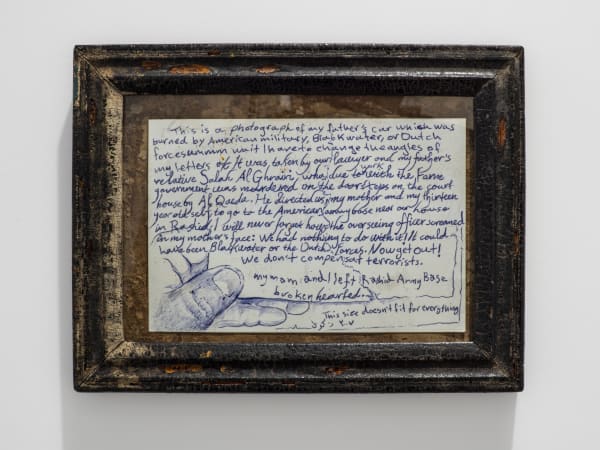 This is a photograph of my father's car which was
burned by American military, Blackwater, or Dutch
forces ummm wait I have to change the angles of
my letters It was taken by our lawyer and my father's
relative Salah Al Ghrairi, who, due to work the
government was murdered on the door steps on the court
house by Al Qaeda. He directed my mother and my thirteen
year old self to go to the American army base near our house
in Rashid, I will never forget how the overseeing officer screamed
in my mother's face: We had nothing to do with it! It could
have been Blackwater or the Dutch Forces. Now get out!
We don't compensat terrorists.
my mam, and I left Rashid Army Base
broken hearted.
This size doesn't fit for everything